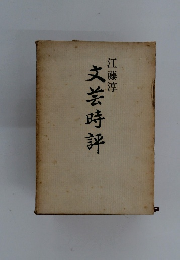 江藤淳
文芸時評